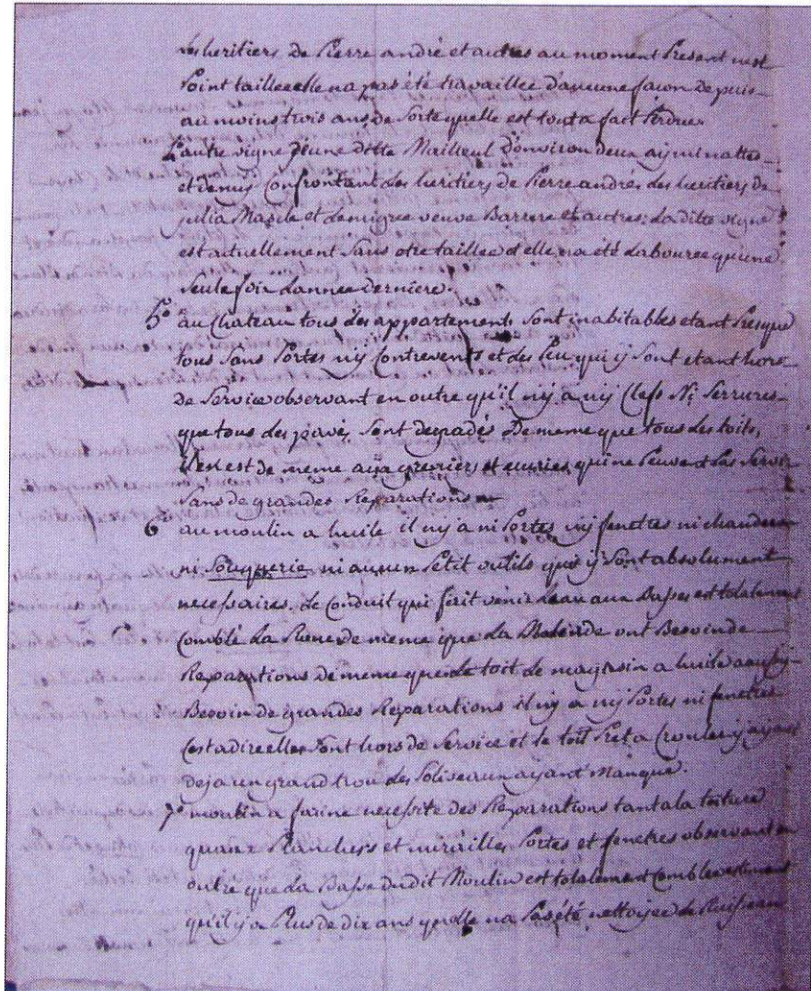 les heritiers de Pierre andré et autres au moment Present nest
Point taillee elle na pas été travaillée d'aucune façon depuis
au moins trois ans de Sorte quelle est tout a fait Perdue
L'autre vigne Jeune ditte Mailleul d'environ deux ayminattes
et demy Confrontant les heritiers de Pierre andré les heritiers de
Julia et veuve Barrere et autres. La ditte vigne
est actuellement Sans etre taillee et elle na été Labouree qu'une
Seule fois L'annee derniere.
5° au Chateau tous les appartements Sont inabitables etant Presque
tous Sans Portes ny Contrevents et les Peu qui y Sont etant hors
de Service observant en outre qu'il ny a ny Clefs Ni Serrures
que tous les pavés Sont degradés De meme que tous les toits,
Il en est de meme aux greniers et ecuries qui ne Peuvent Pas Servir
Sans de grandes Reparations
6° au moulin a huile il ny a ni Portes ny fenetres ni chaudiere
ni Souquerie ni aucun Petit outils qui y Sont absolument
necessaires. Le Conduit qui ferit venir Leau aux Basses est totalement
Comblé La Roue de meme que La ont Besoin de
Reparations de meme que Le toit Le magasin a huile a aussy
Besoin de grandes Reparations il ny a ny Portes ni fenetres
Cest a dire elles Sont hors de Service et le toit Pret a Crouler y ayant
deja un grand trou des Soliveaux ayant Manqué.
7° moulin a farine necessite des Reparations tant a la toiture
quaux Planchers et murailles Portes et fenetres observant en
outre que La Basse dudit Moulin est totalement Comblee
qu'il y a Plus de dix ans quelle na Pas été nettoyee le Ruisseau